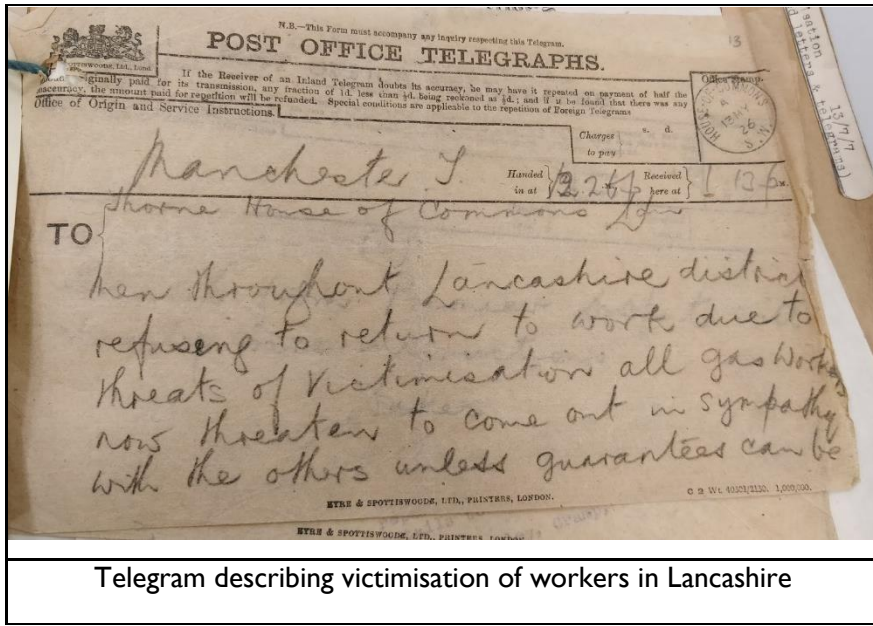 N.B.—This Form must accompany any inquiry respecting this Telegram.
POST OFFICE TELEGRAPHS.
13
SPOTTISWOODE, Ltd., Lond.
If the Receiver of an Inland Telegram doubts its accuracy, he may have it repeated on payment of half the
originally paid for its transmission, any fraction of 1d. less than ½d. being reckoned as ½d.; and if it be found that there was any
inaccuracy, the amount paid for repetition will be refunded. Special conditions are applicable to the repetition of Foreign Telegrams
Office of Origin and Service Instructions.
Office Stamp.
HOUSE OF COMMONS
26
S.W.
Charges
to pay
s. d.
Manchester
Handed
in at
Received
here at
TO
Thorne House of Commons Ldn
Men throughout Lancashire district
refusing to return to work due to
threats of Victimisation all gas workers
now threaten to come out in sympathy
with the others unless guarantees can be
EYRE & SPOTTISWOODE, LTD., PRINTERS, LONDON.
EYRE & SPOTTISWOODE, LTD., PRINTERS, LONDON
13/7/7
letters & telegrams)
Telegram describing victimisation of workers in Lancashire